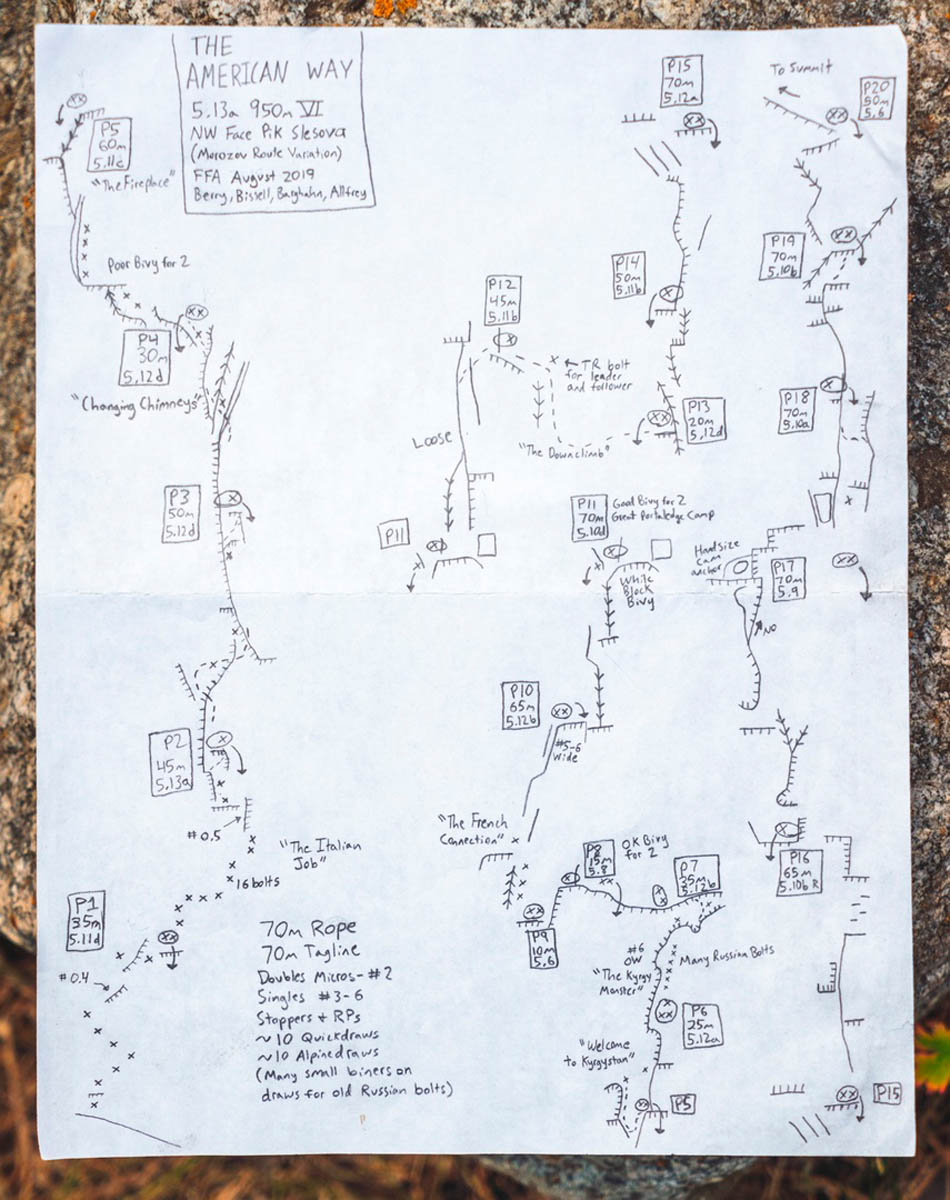 THE
AMERICAN WAY
5.13a 950m VI
NW Face Pik Slesova
(Morozov Route Variation)
FFA August 2019
Berry, Bissell, Barghahn, Allfrey
P5
60m
5.11c
"The Fireplace"
Poor Bivy for 2
P4
30m
5.12d
"Changing Chimneys"
P3
50m
5.12d
P2
45m
5.13a
#0.5
"The Italian
Job"
16 bolts
P1
35m
5.11d
#0.4
70m Rope
70m Tagline
Doubles Micros-#2
Singles #3-6
Stoppers + RPs
~10 Quickdraws
~10 Alpinedraws
(Many small biners on
draws for old Russian bolts)
P12
45m
5.11b
← TR bolt
for leader
and follower
Loose
"The Downclimb"
P11
P11
70m
5.10d
Good Bivy for 2
Great Portaledge Camp
White
Block
Bivy
P10
65m
5.12b
#5-6
Wide
"The French
Connection"
P8
15m
5.8
OK Bivy
for 2
P7
25m
5.12b
P9
10m
5.6
#6
OW
"The Kyrgy
Monster"
Many Russian Bolts
P6
25m
5.12a
"Welcome
to Kyrgystan"
P5
P15
70m
5.12a
P14
50m
5.11b
P13
20m
5.12d
To Summit
P20
50m
5.6
P19
70m
5.10b
P18
70m
5.10a
Handsize
cam
anchor
P17
70m
5.9
NO
P16
65m
5.10b R
P15